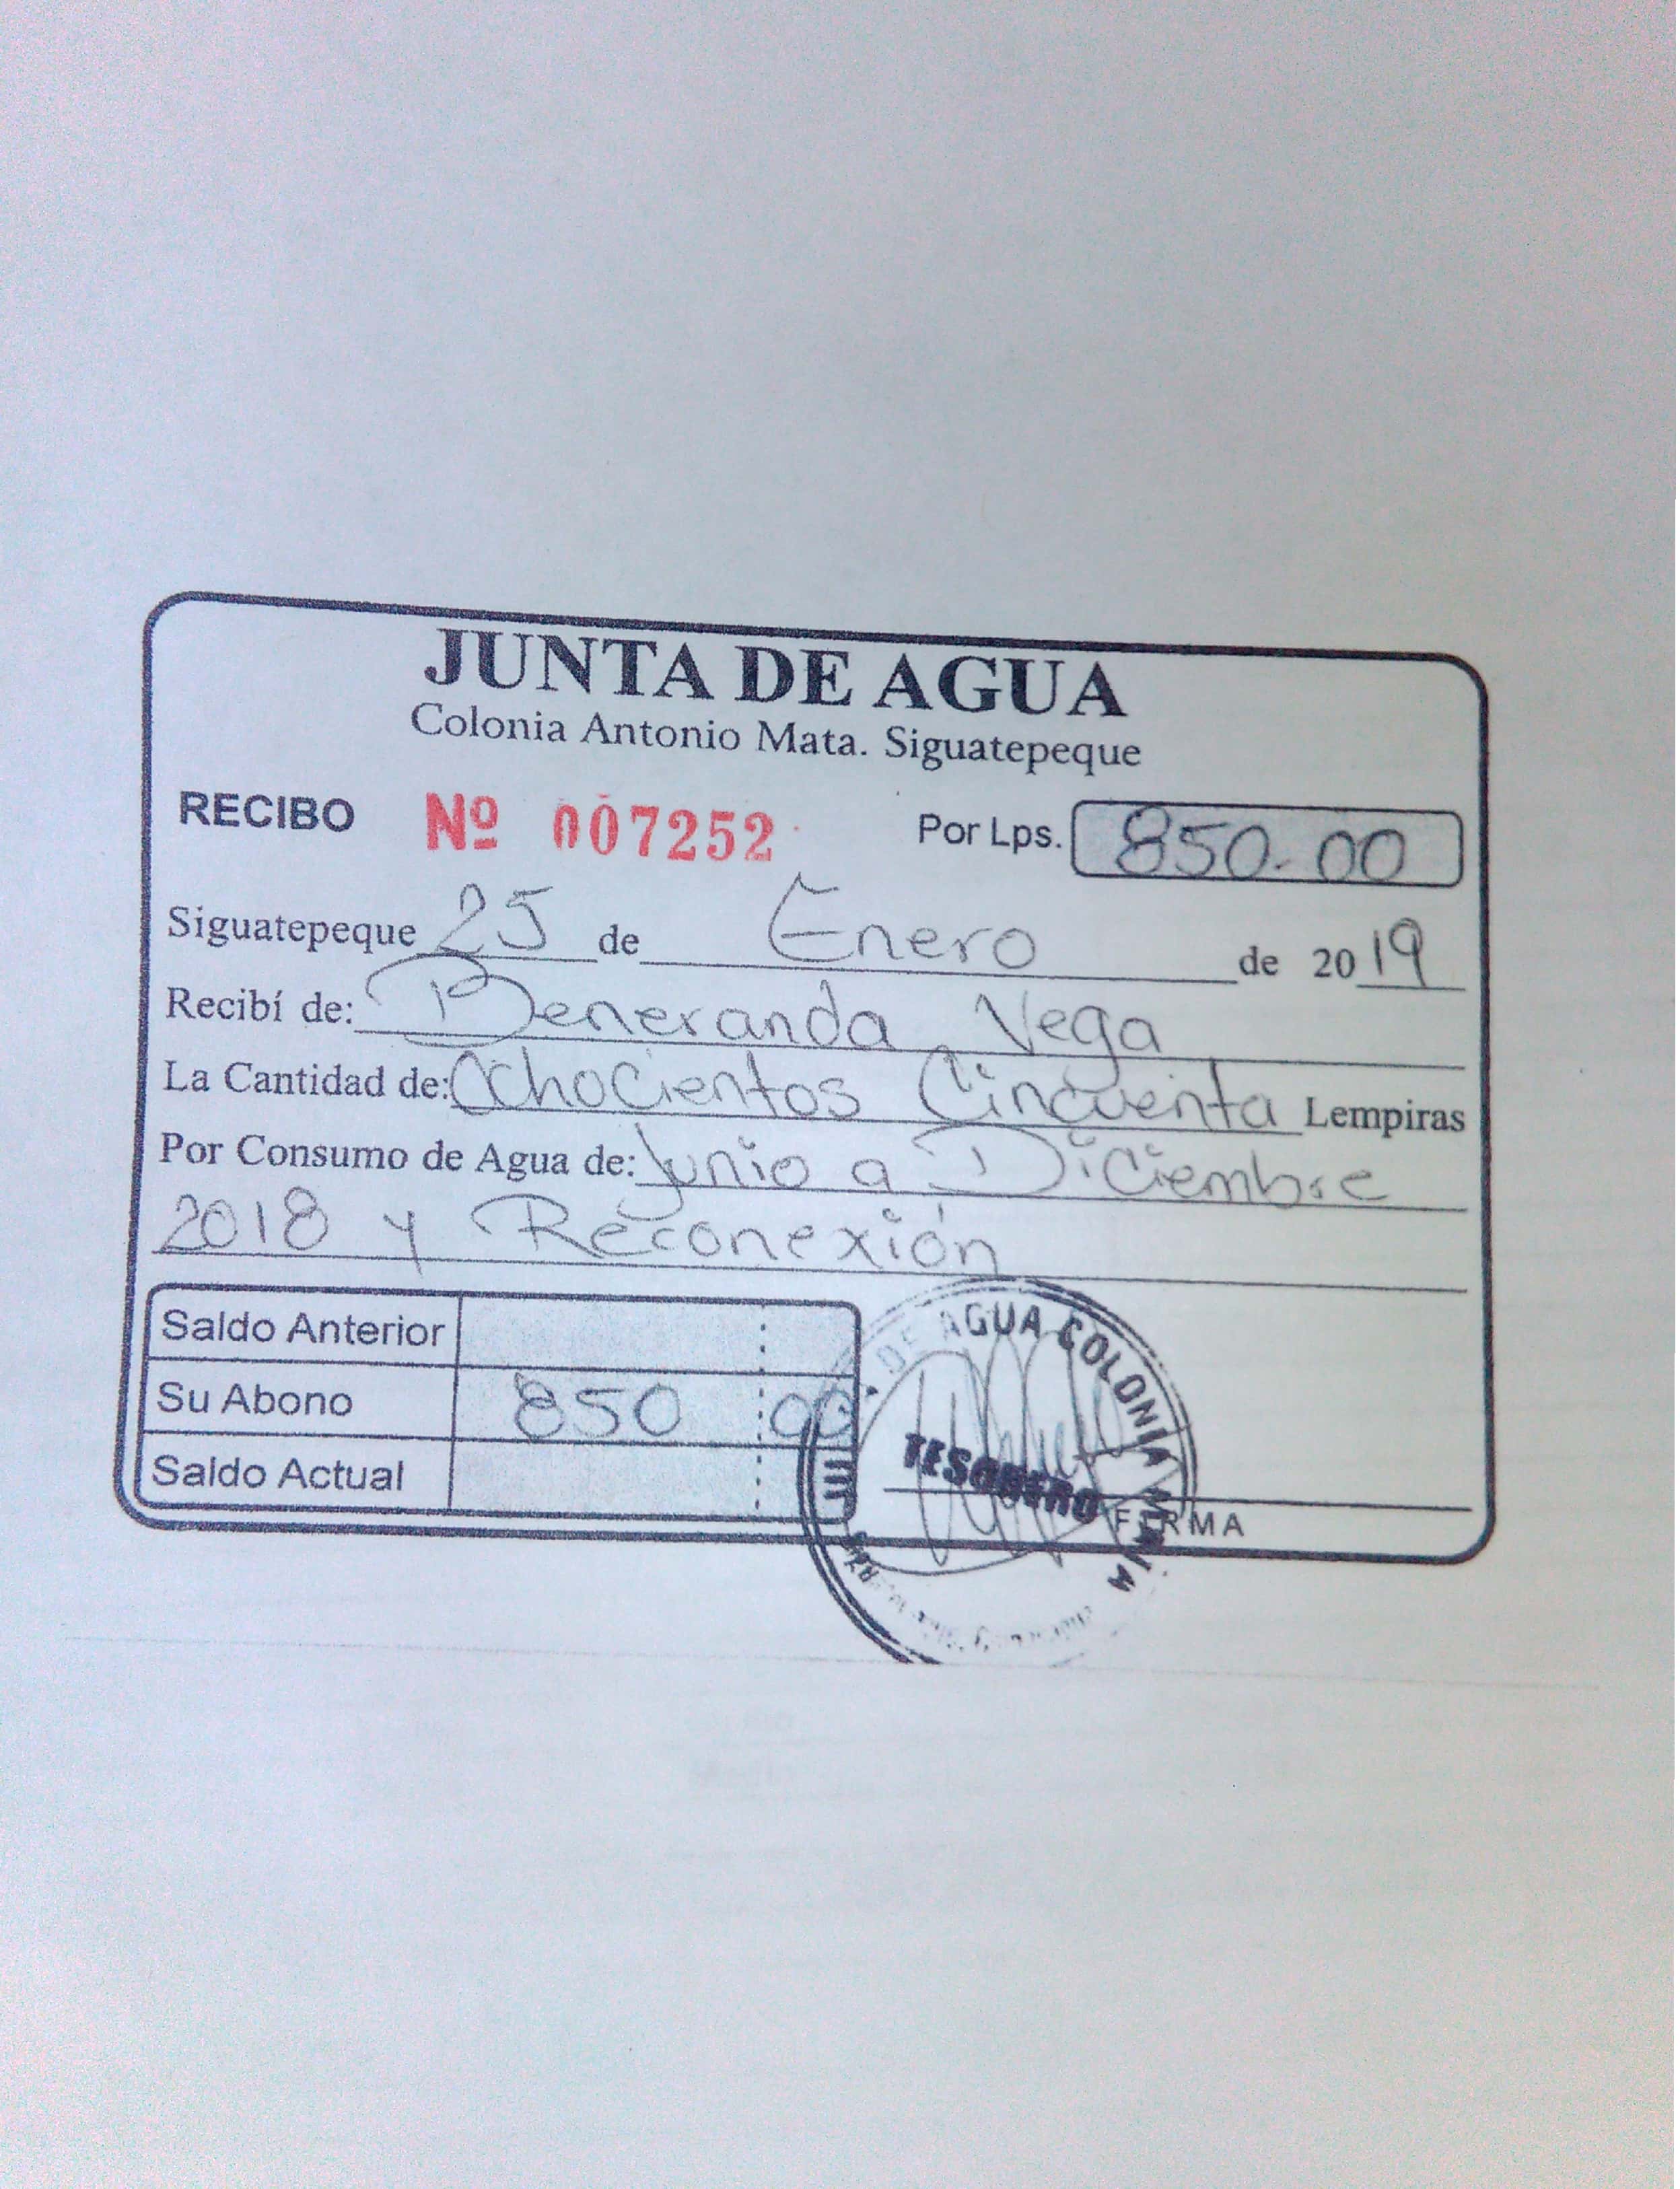 JUNTA DE AGUA
Colonia Antonio Mata. Siguatepeque
RECIBO Nº 007252 Por Lps. 850.00
Siguatepeque 25 de Enero de 2019
Recibí de: Beneranda Vega
La Cantidad de: Ochocientos Cincuenta Lempiras
Por Consumo de Agua de: Junio a Diciembre
2018 y Reconexión
Saldo Anterior
Su Abono 850 00
Saldo Actual
DE AGUA COLONIA
TESORERO
FIRMA